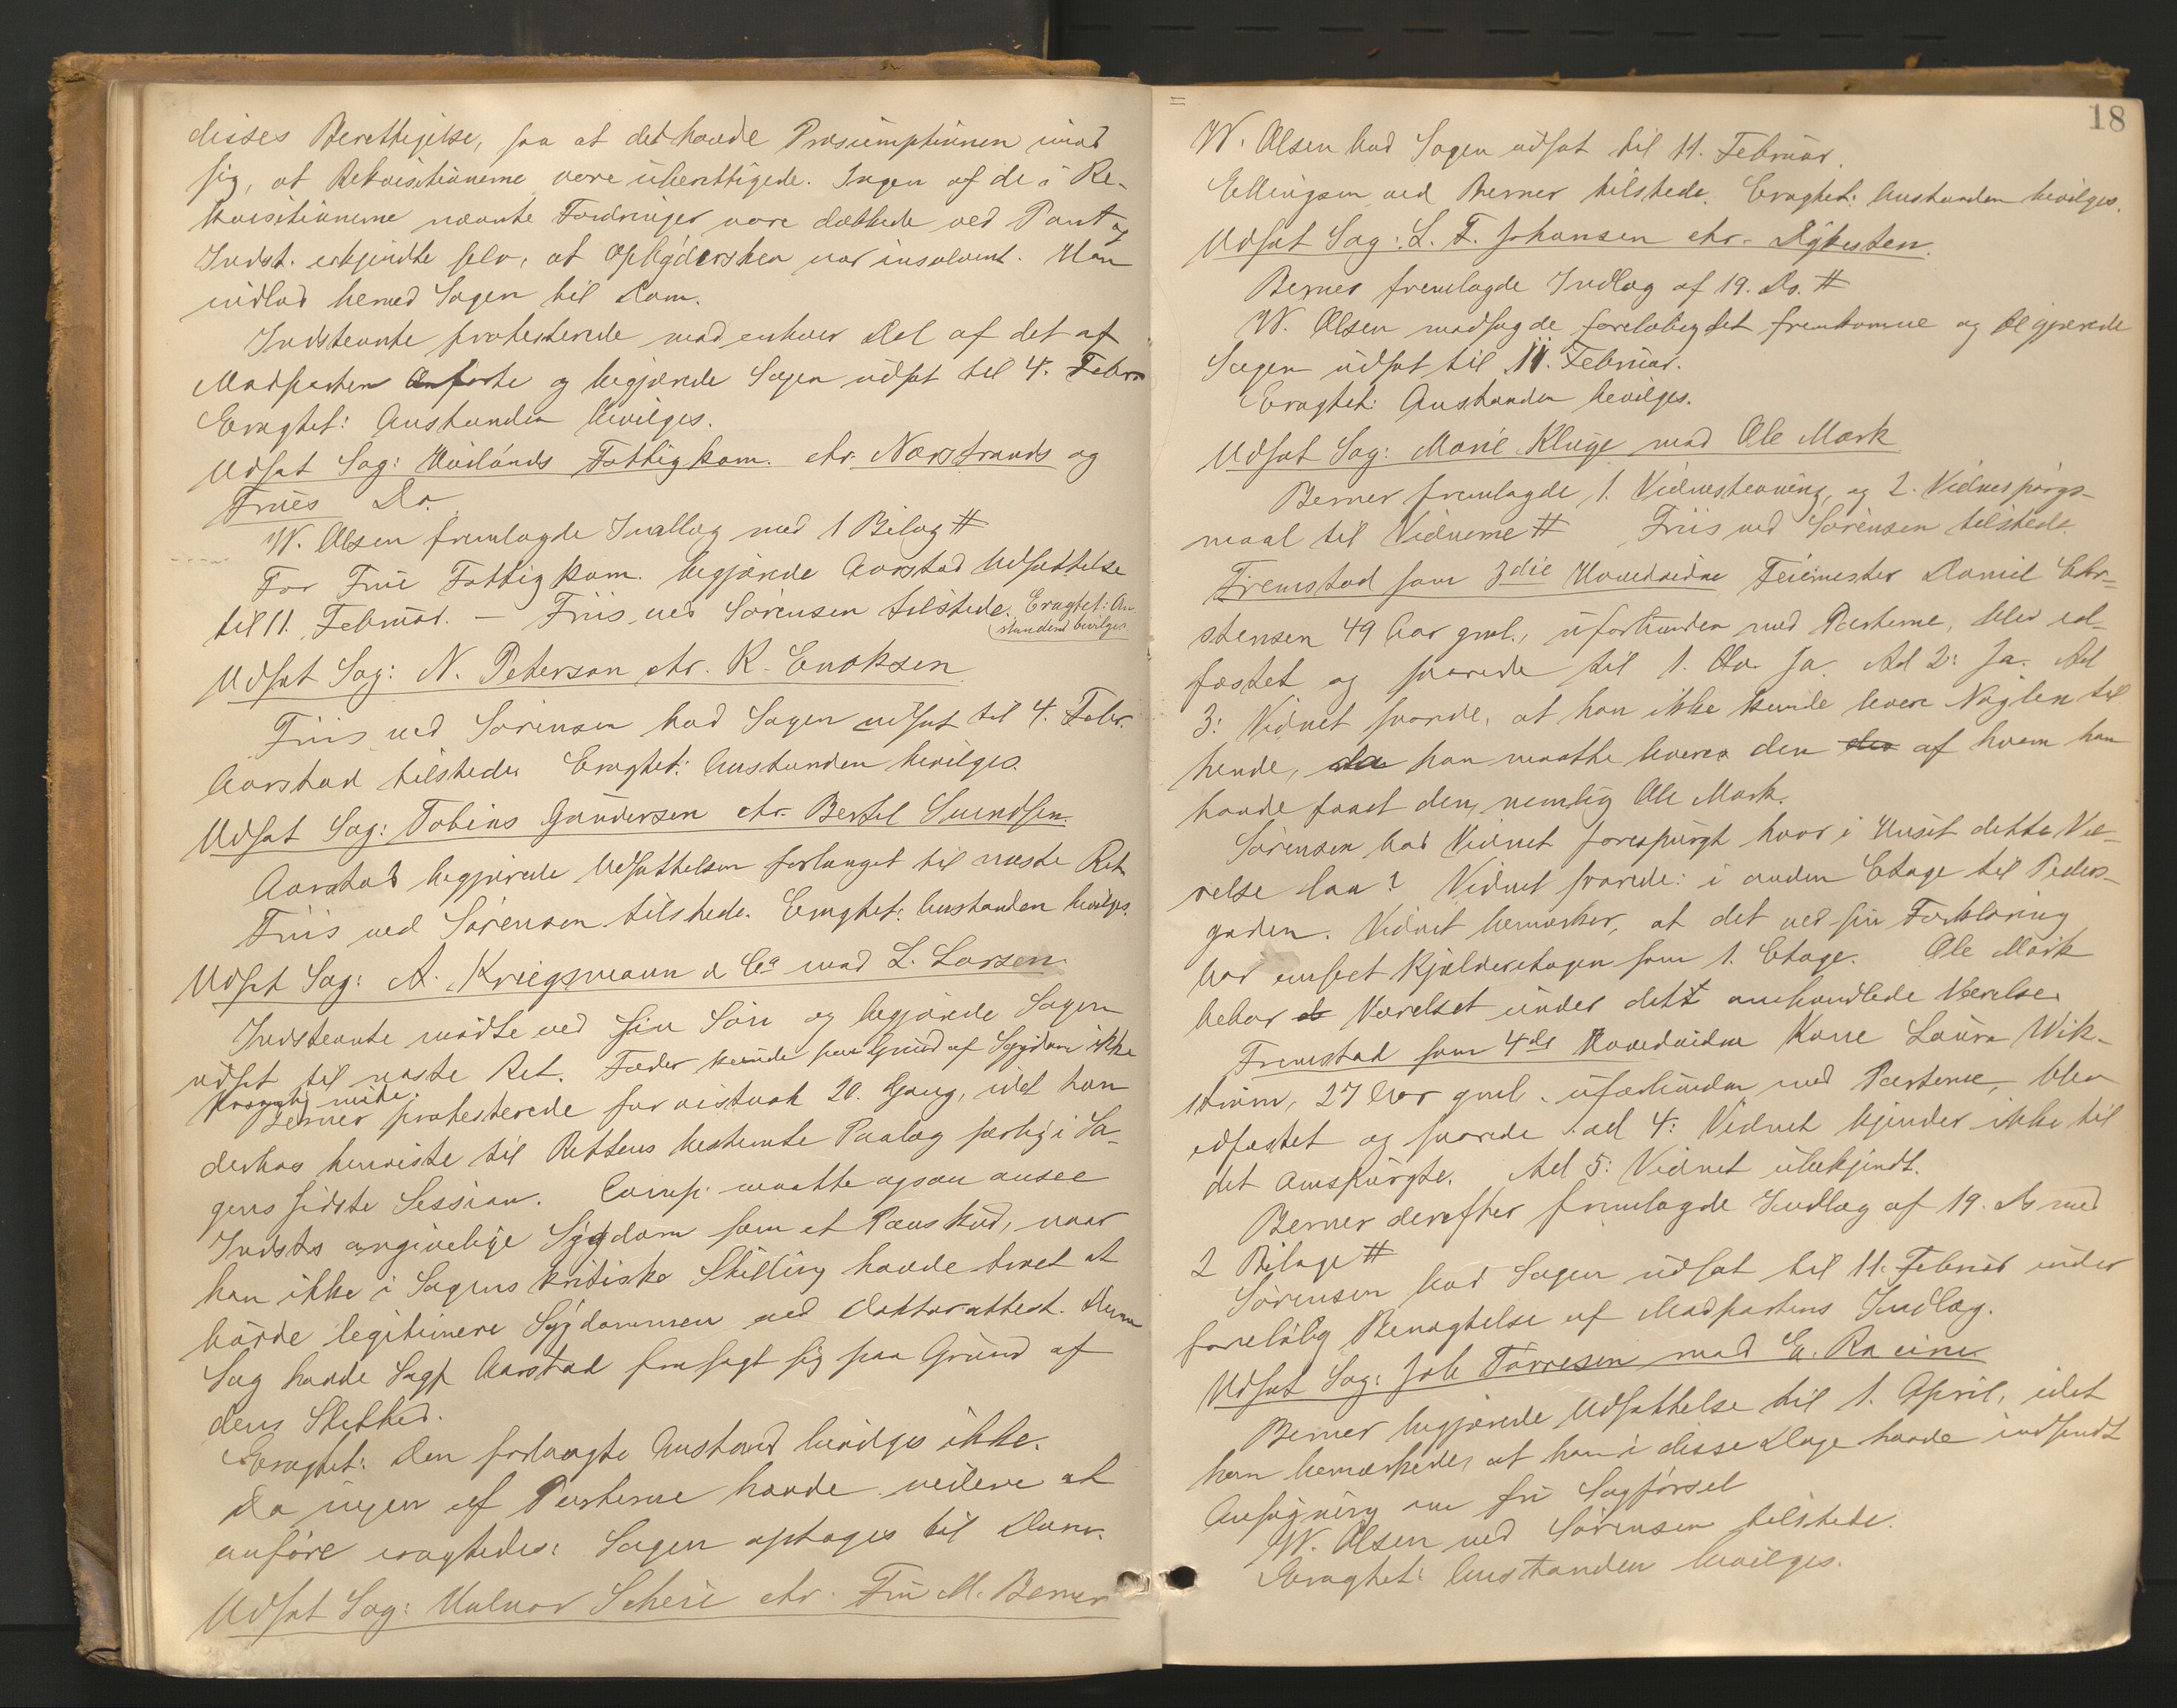 disses Berettigelse, saa at det havde Præsumptionen imod
sig, at Rekvisitionerne vare uberettigede. Ingen af de i Re-
kvisitionerne nævnte Fordringer vare dækkede ved Pant og
Indst. erkjendte selv, at Opbyderskea var insolvent. Han
indlod hermed Sagen til Dom.
Indstevnte protesterede mod enhver Del af det af
Modparten Anførte og begjærede Sagen udsat til 4. Febru
Eragtet: Anstanden bevilges.
Udsat Sag: Hetlands Fattigkom. ctr. Nærstrands og
Fines Do.
W. Olsen fremlagde Indlæg med 1 Bilag #
For Fine Fattigkom. begjærede Aarstad Udsættelse
til 11. Februar. – Friis ved Sørensen tilstede. Eragtet: An-
standen bevilges
Udsat Sag: N. Peterson ctr. K. Enoksen
Friis ved Sørensen bad Sagen udsat til 4. Febr.
Aarstad tilstede. Eragtet: Anstanden bevilges.
Udsat Sag: Tobias Gundersen ctr. Bertel Svendsen.
Aarstad begjærede Udsættelsen forlænget til næste Ret
Friis ved Sørensen tilstede. Eragtet: Anstanden bevilges.
Udsat Sag: A. Kriegsmann & Co mod L. Larsen.
Indstevnte mødte ved sin Søn og begjærede Sagen
udsat til næste Ret. Fader kunde paa Grund af Sygdom ikke
personlig møde.
Berner protesterede for vistnok 20. Gang, idet han
derhos henviste til Rettens bestemte Paalæg særlig i Sa-
gens sidste Session. Comp. maatte ogsaa ansee
Indsts angivelige Sygdom som et Paaskud, naar
han ikke i Sagens kritiske Stilling havde troet at
burde legitimere Sygdommen ved Doktorattest. Denne
Sag havde Sagf. Aarstad frasagt sig paa Grund af
dens Slethed.
Eragtet: Den forlangte Anstand bevilges ikke.
Da ingen af Parterne havde videre at
anføre eragtedes: Sagen optages til Dom.
Udsat Sag: Halvor Scheie ctr. Fru M. Berner
18
W. Olsen bad Sagen udsat til 11. Februar.
Ellingsen ved Berner tilstede. Eragtet: Anstanden bevilges.
Udsat Sag: L. F. Johansen ctr. Dybesten.
Berner fremlagde Indlæg af 19. Ds. #
W. Olsen modsagde foreløbig det fremkomne og begjærede
Sagen udsat til 11. Februar.
Eragtet: Anstanden bevilges.
Udsat Sag: Marie Kluge mod Ole Mark
Berner fremlagde 1. Vidnestevning, og 2. Vidnespørgs-
maal til Vidnerne # Friis ved Sørensen tilstede.
Fremstod som 3die Hovedvidne Feiemester Daniel Chr-
stensen 49 Aar gml., uforbunden med Parterne, blev ed-
fæstet og svarede til 1. Qv. Ja. Ad 2: Ja. Ad
3: Vidnet svarede, at han ikke kunde levere Nøglen til
hende, da han maatte levere den der af hvem han
havde faaet den, nemlig Ole Mark.
Sørensen bad Vidnet forespurgt hvor i Huset dette Væ-
relse laa? Vidnet svarede: i anden Etage til Peders-
gaden. Vidnet bemærker, at det ved sin Forklaring
har anseet Kjælderetagen som 1. Etage. Ole Mark
bebor Værelset under det omhandlede Værelse
Fremstod som 4de Hovedvidne Kone Laura Wik-
strøm, 27 Aar gml. uforbunden med Parterne, blev
edfæstet og svarede ad 4: Vidnet kjender ikke til
det Omspurgte. Ad 5: Vidnet ubekjendt.
Berner derefter fremlagde Indlæg af 19. Ds med
2 Bilage #
Sørensen bad Sagen udsat til 11. Februar under
foreløbig Benægtelse af Modpartens Indlæg.
Udsat Sag: Job Tørresen mod E. Racine
Berner begjærede Udsættelse til 1. April, idet
han bemærkede, at han i disse Dage havde indsendt
Ansøgning om fri Sagførsel
W. Olsen ved Sørensen tilstede.
Eragtet: Anstanden bevilges.